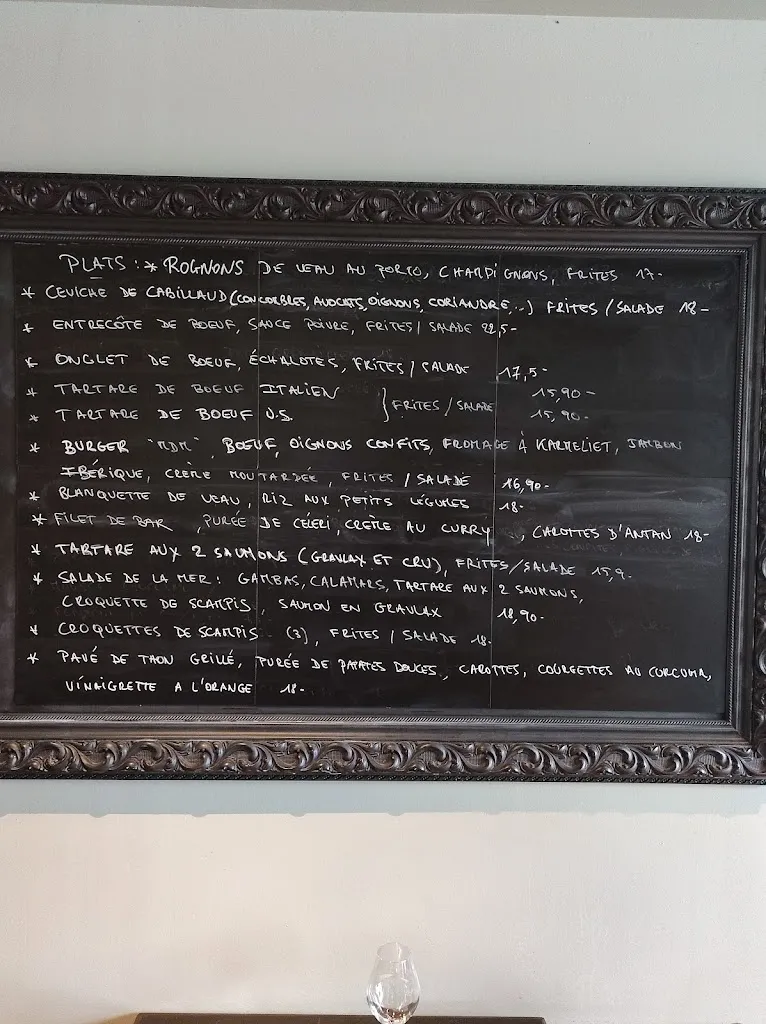 PLATS : * ROGNONS DE VEAU AU PORTO, CHAMPIGNONS, FRITES 17-
* CEVICHE DE CABILLAUD (CONCOMBRES, AVOCATS, OIGNONS, CORIANDRE,..) FRITES / SALADE 18-
* ENTRECÔTE DE BOEUF, SAUCE POIVRE, FRITES / SALADE 22,5-
* ONGLET DE BOEUF, ÉCHALOTES, FRITES / SALADE 17,5-
* TARTARE DE BOEUF ITALIEN } FRITES / SALADE 15,90-
* TARTARE DE BOEUF U.S. 15,90-
* BURGER "MDM", BOEUF, OIGNONS CONFITS, FROMAGE À KARMELIET, JAMBON
IBÉRIQUE, CRÈME MOUTARDÉE, FRITES / SALADE 16,90-
* BLANQUETTE DE VEAU, RIZ AUX PETITS LÉGUMES 18-
* FILET DE BAR, PURÉE DE CÉLERI, CRÈME AU CURRY, CAROTTES D'ANTAN 18-
* TARTARE AUX 2 SAUMONS (GRAVLAX ET CRU), FRITES / SALADE 15,9-
* SALADE DE LA MER : GAMBAS, CALAMARS, TARTARE AUX 2 SAUMONS,
CROQUETTE DE SCAMPIS, SAUMON EN GRAVLAX 18,90-
* CROQUETTES DE SCAMPIS (3), FRITES / SALADE 18-
* PAVÉ DE THON GRILLÉ, PURÉE DE PATATES DOUCES, CAROTTES, COURGETTES AU CURCUMA,
VINAIGRETTE A L'ORANGE 18-